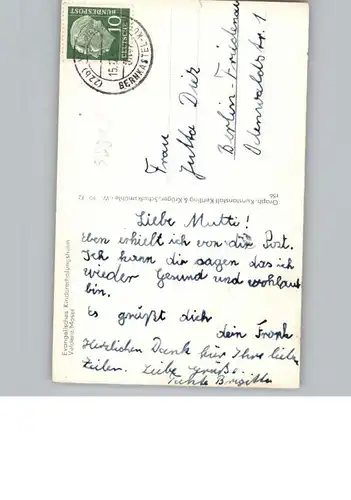 DEUTSCHE
BUNDESPOST
10
(22b)
BERNKASTEL-KUES
Frau
Jutta Diez
Berlin-Friedenau
Odenwaldstr. 1
Graph. Kunstanstalt Kettling & Krüger, Schalksmühle i. W.
Evangelisches Kinderheim
Veldenz/Mosel
Liebe Mutti!
Eben erhielt ich von dir Post.
Ich kann dir sagen das ich
wieder Gesund und wohlauf
bin.
Es grüßt dich
dein Frank
Herzlichen Dank für Ihre lieben
Zeilen. Liebe Grüße
Tante Brigitte